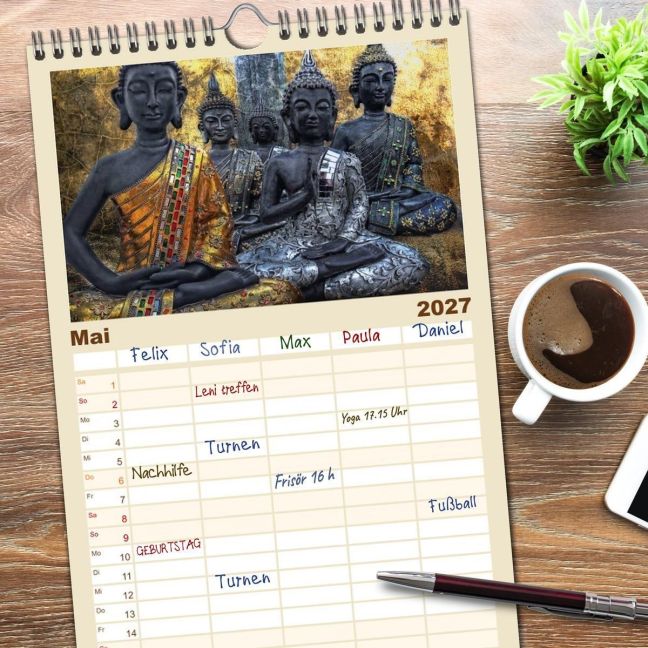 Mai 2027
Felix Sofia Max Paula Daniel
Sa 1
So 2 Leni treffen
Mo 3
Di 4 Yoga 17.15 Uhr
Mi 5 Turnen
Do 6 Nachhilfe
Fr 7 Frisör 16 h
Sa 8
So 9 Fußball
Mo 10 GEBURTSTAG
Di 11
Mi 12 Turnen
Do 13
Fr 14